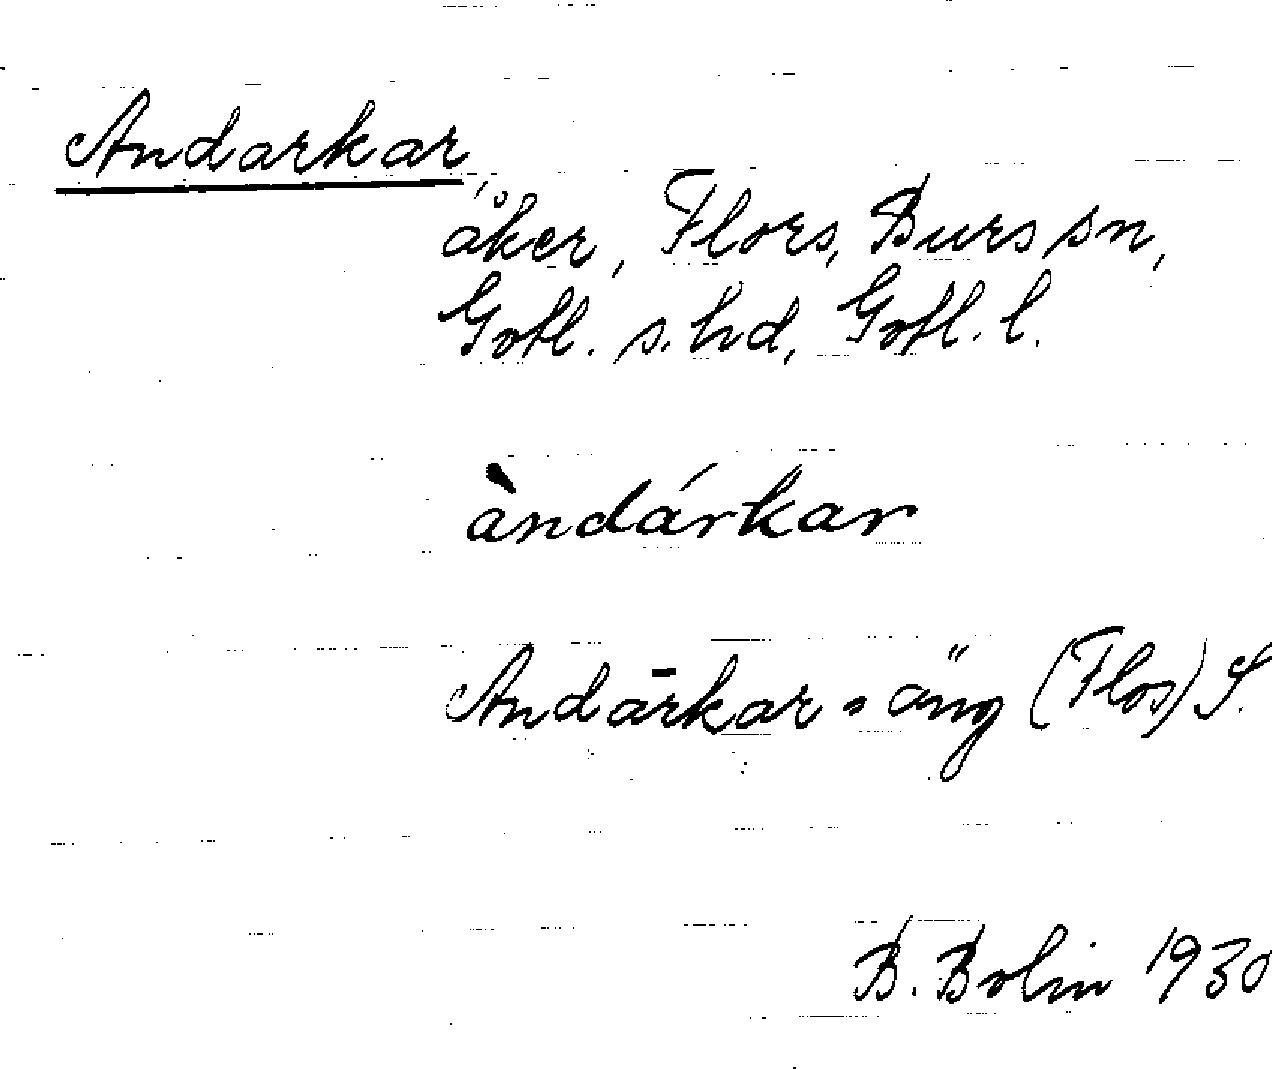 Andarkar
åker, Flors, Burs sn,
Gotl. s. hd, Gotl. l.
àndárkar
Andārkar=äng (Flos) S.
B. Bolin 1930